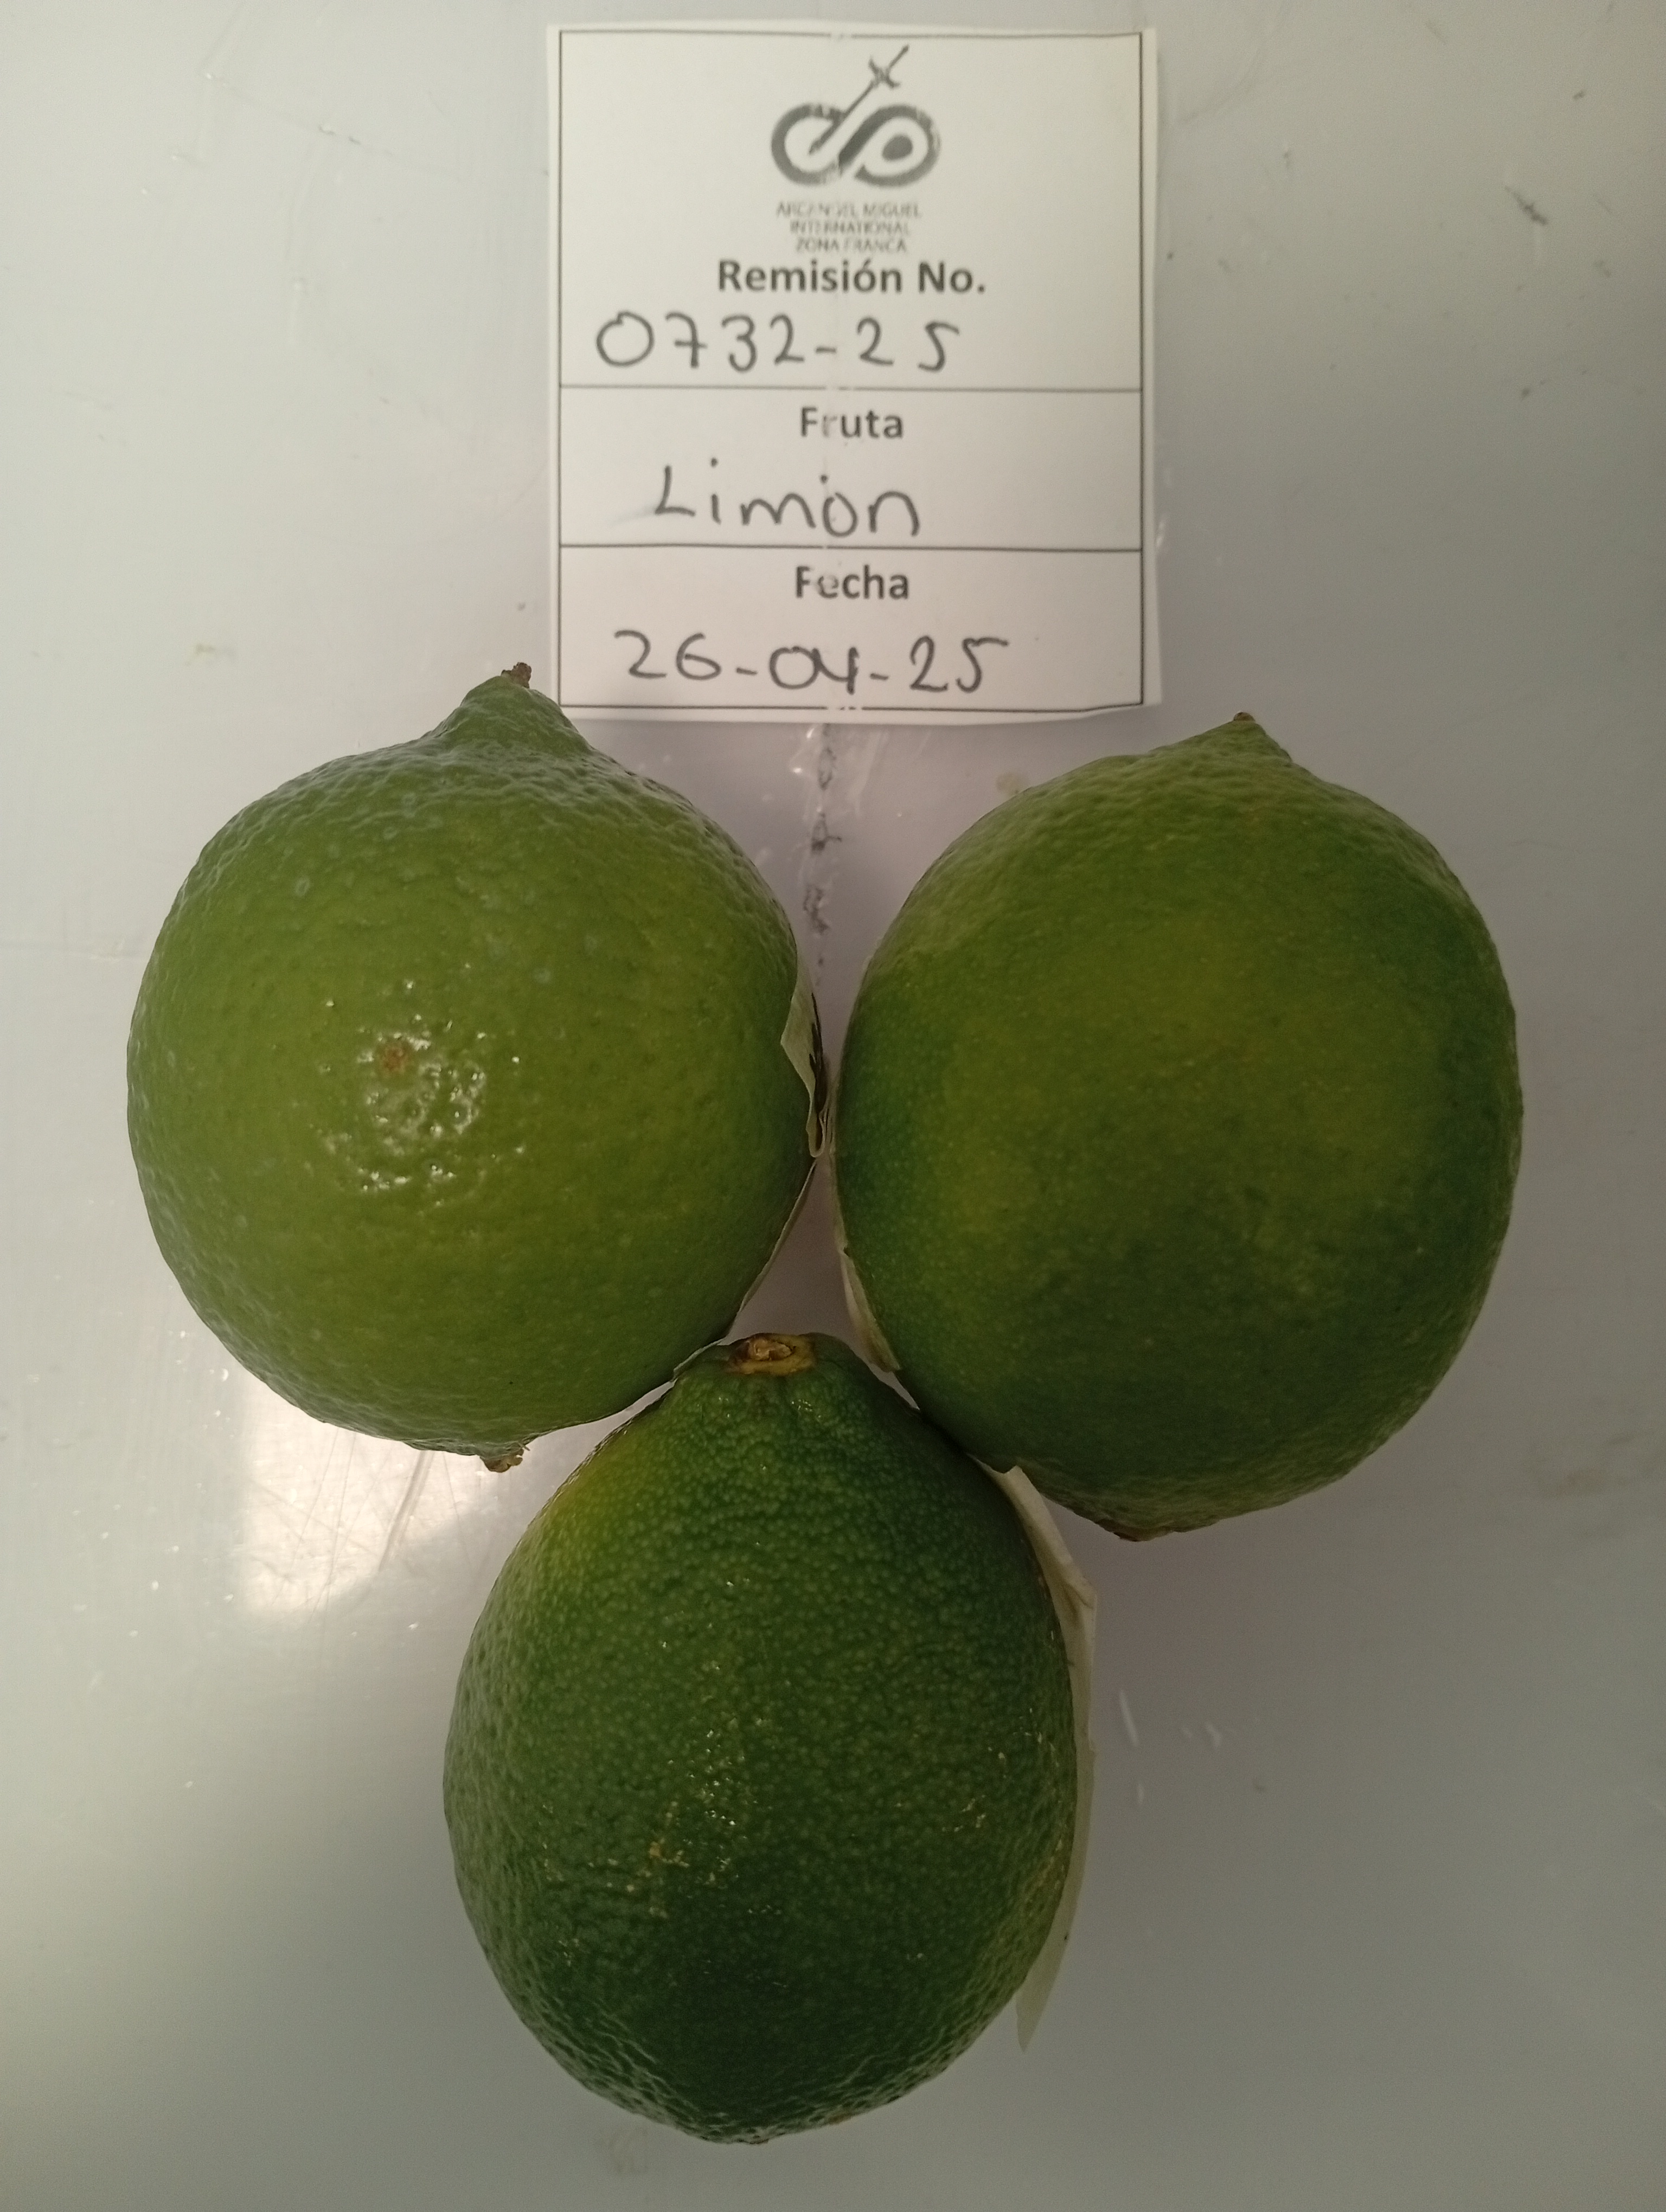 ARCANGEL MIGUEL
INTERNATIONAL
ZONA FRANCA
Remisión No.
0732-25
Fruta
Limón
Fecha
26-04-25